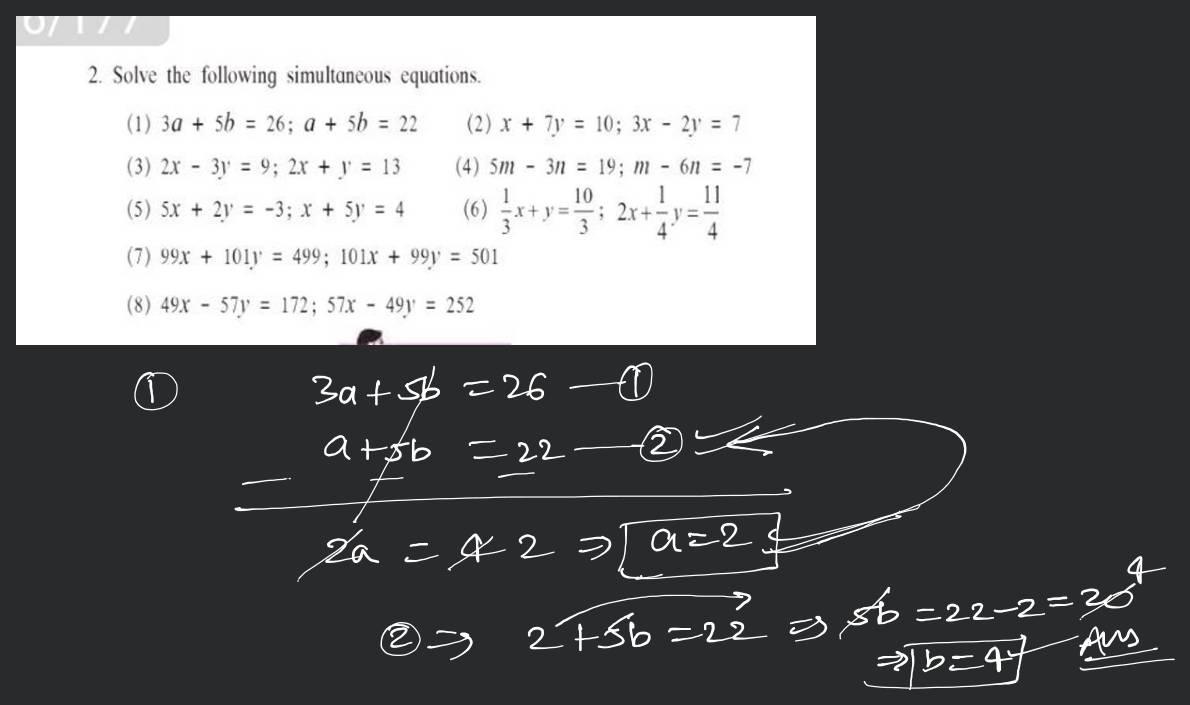 6/177
2. Solve the following simultaneous equations.
(1) 3a + 5b = 26; a + 5b = 22 (2) x + 7y = 10; 3x - 2y = 7
(3) 2x - 3y = 9; 2x + y = 13 (4) 5m - 3n = 19; m - 6n = -7
(5) 5x + 2y = -3; x + 5y = 4 (6) 1/3 x + y = 10/3; 2x + 1/4 y = 11/4
(7) 99x + 101y = 499; 101x + 99y = 501
(8) 49x - 57y = 172; 57x - 49y = 252
① 3a + 5b = 26 — ①
a + 5b = 22 — ②
— — —
2a = 4 2 ⇒ a = 2
② ⇒ 2 + 5b = 22 ⇒ 5b = 22 - 2 = 20 4
⇒ b = 4 Ans